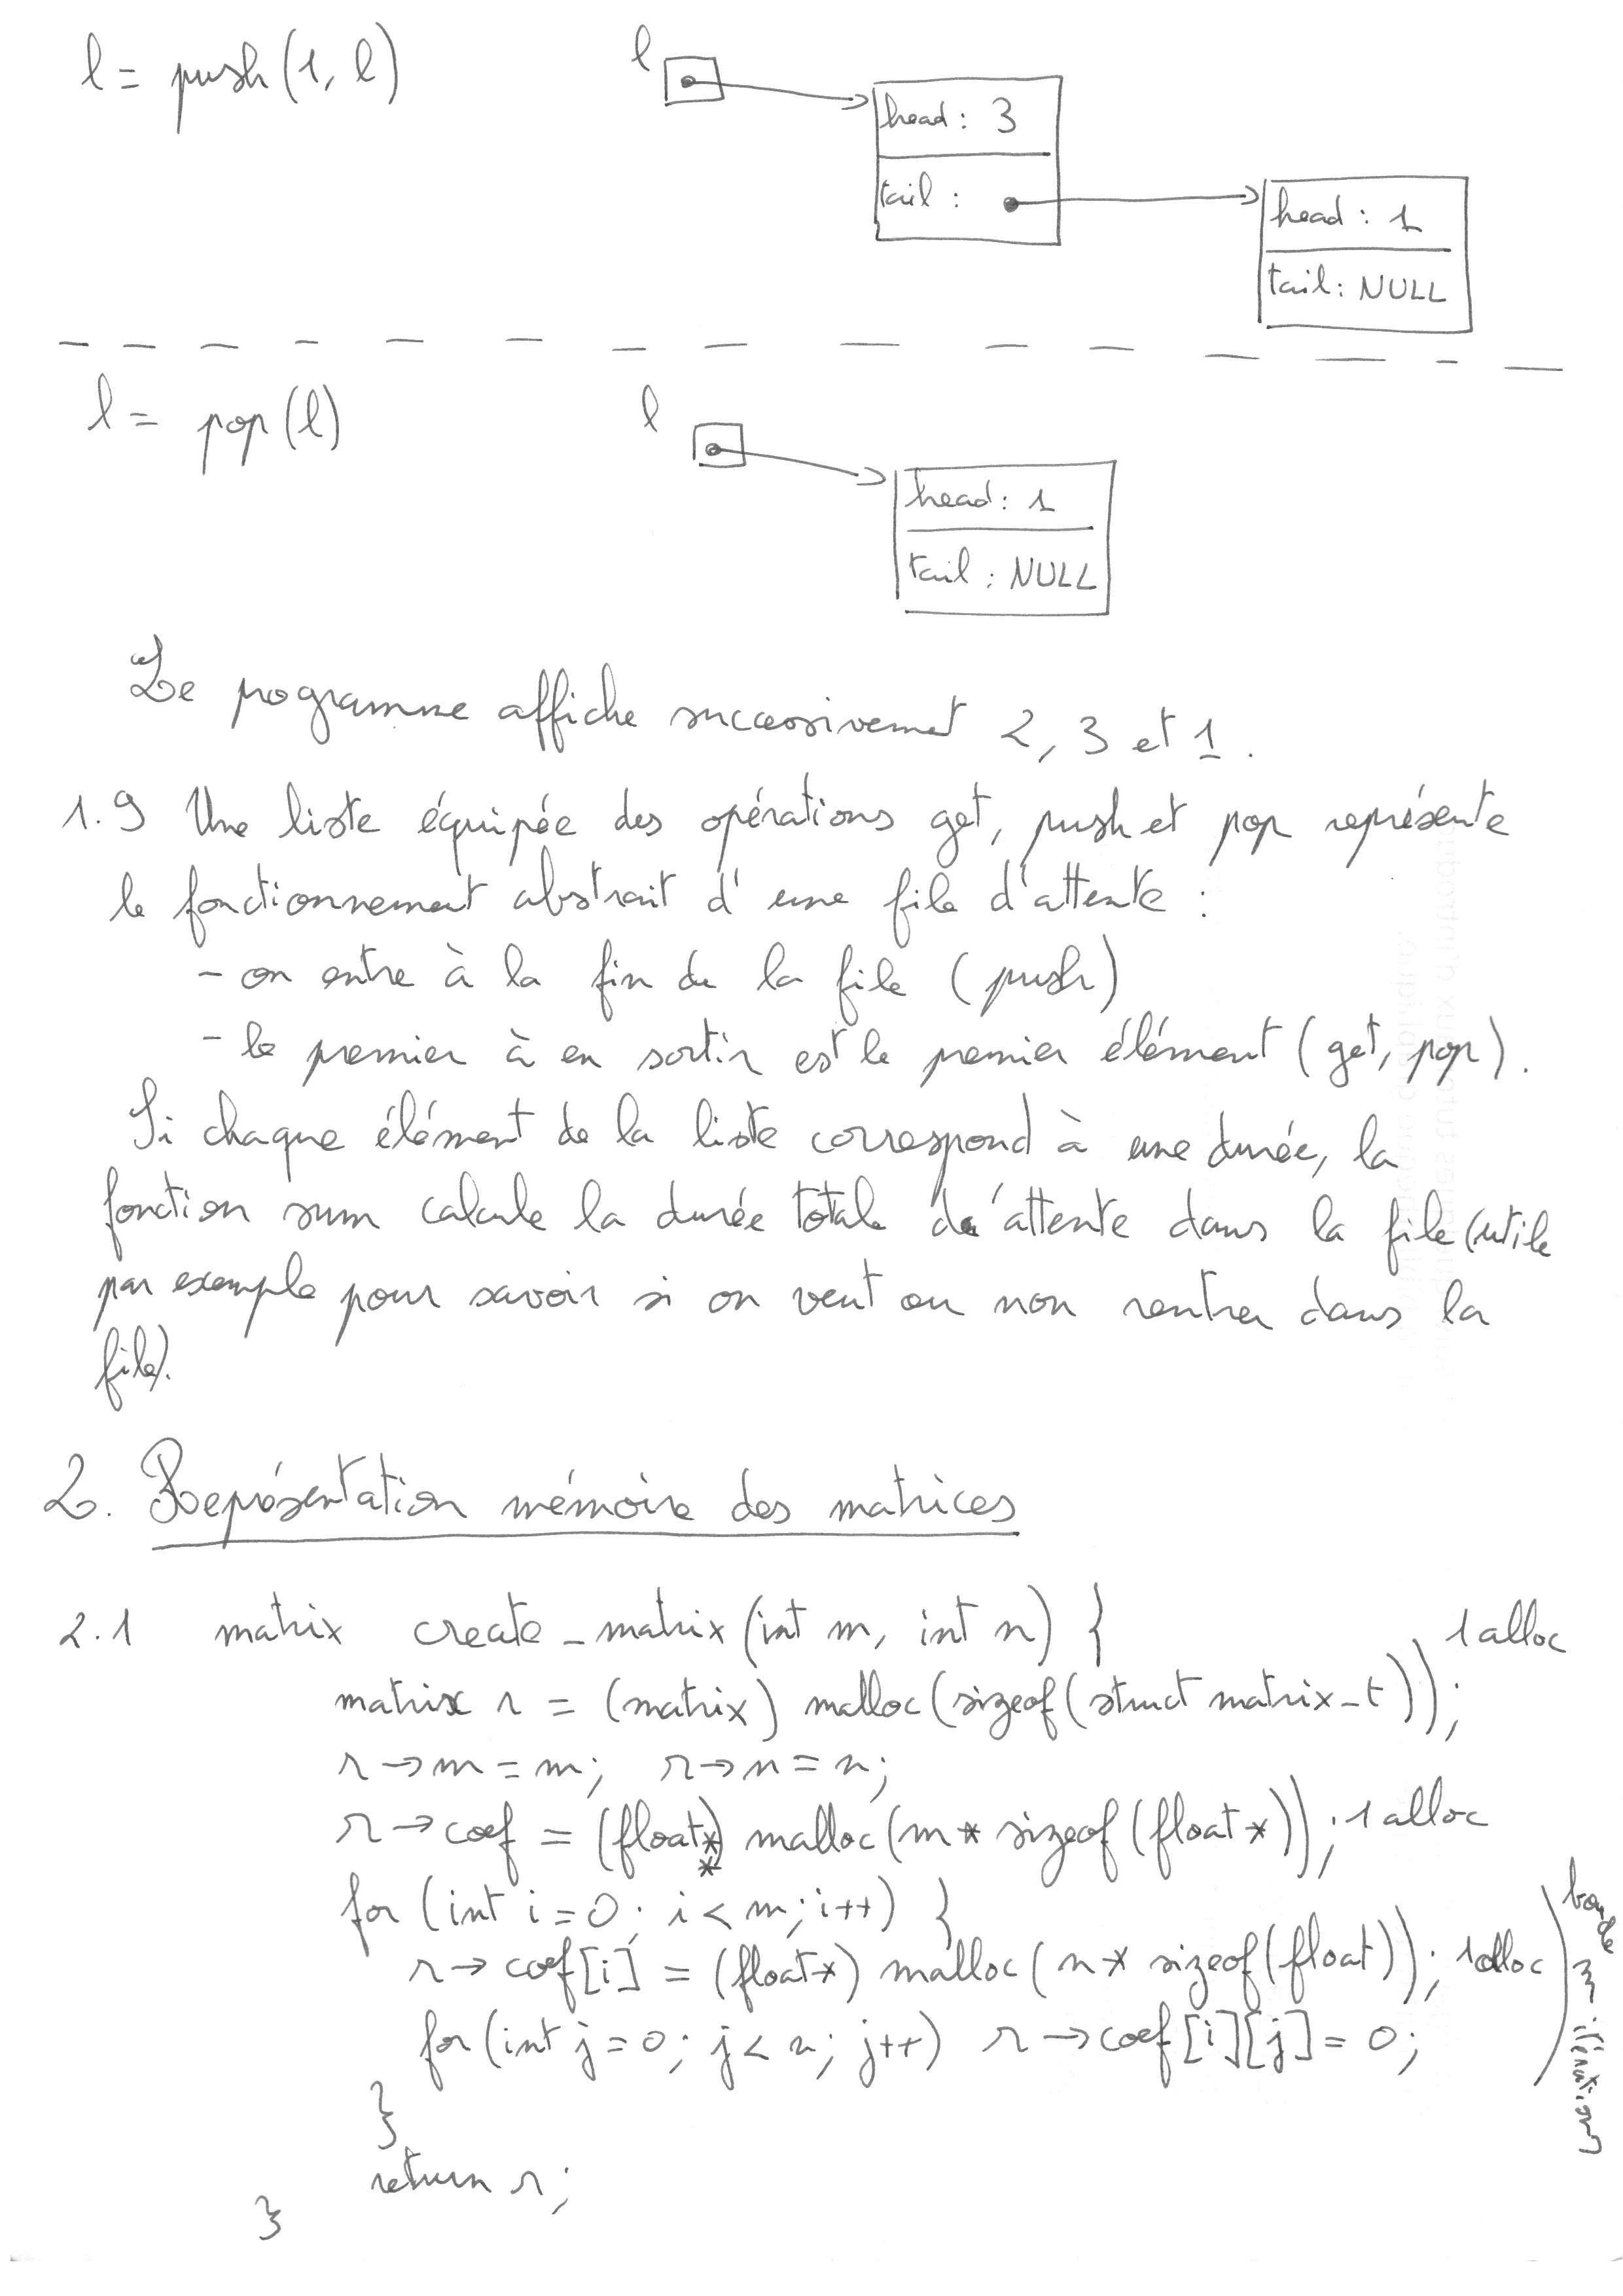 l = push(1, l)
l
head : 3
tail :
head : 1
tail : NULL
l = pop(l)
l
head : 1
tail : NULL
Le programme affiche successivement 2, 3 et 1.
1.9 Une liste équipée des opérations get, push et pop représente
le fonctionnement abstrait d'une file d'attente :
- on entre à la fin de la file (push)
- le premier à en sortir est le premier élément (get, pop).
Si chaque élément de la liste correspond à une durée, la
fonction sum calcule la durée totale d'attente dans la file (utile
par exemple pour savoir si on veut ou non rentrer dans la
file).
2. Représentation mémoire des matrices
2.1 matrix create_matrix(int m, int n) {
matrix r = (matrix) malloc(sizeof(struct matrix_t)); 1 alloc
r->m = m; r->n = n;
r->coef = (float**) malloc(m* sizeof(float*)); 1 alloc
for (int i=0; i<m; i++) {
r->coef[i] = (float*) malloc(n* sizeof(float)); 1 alloc
for (int j=0; j<n; j++) r->coef[i][j] = 0;
}
return r;
}
boucle m itérations